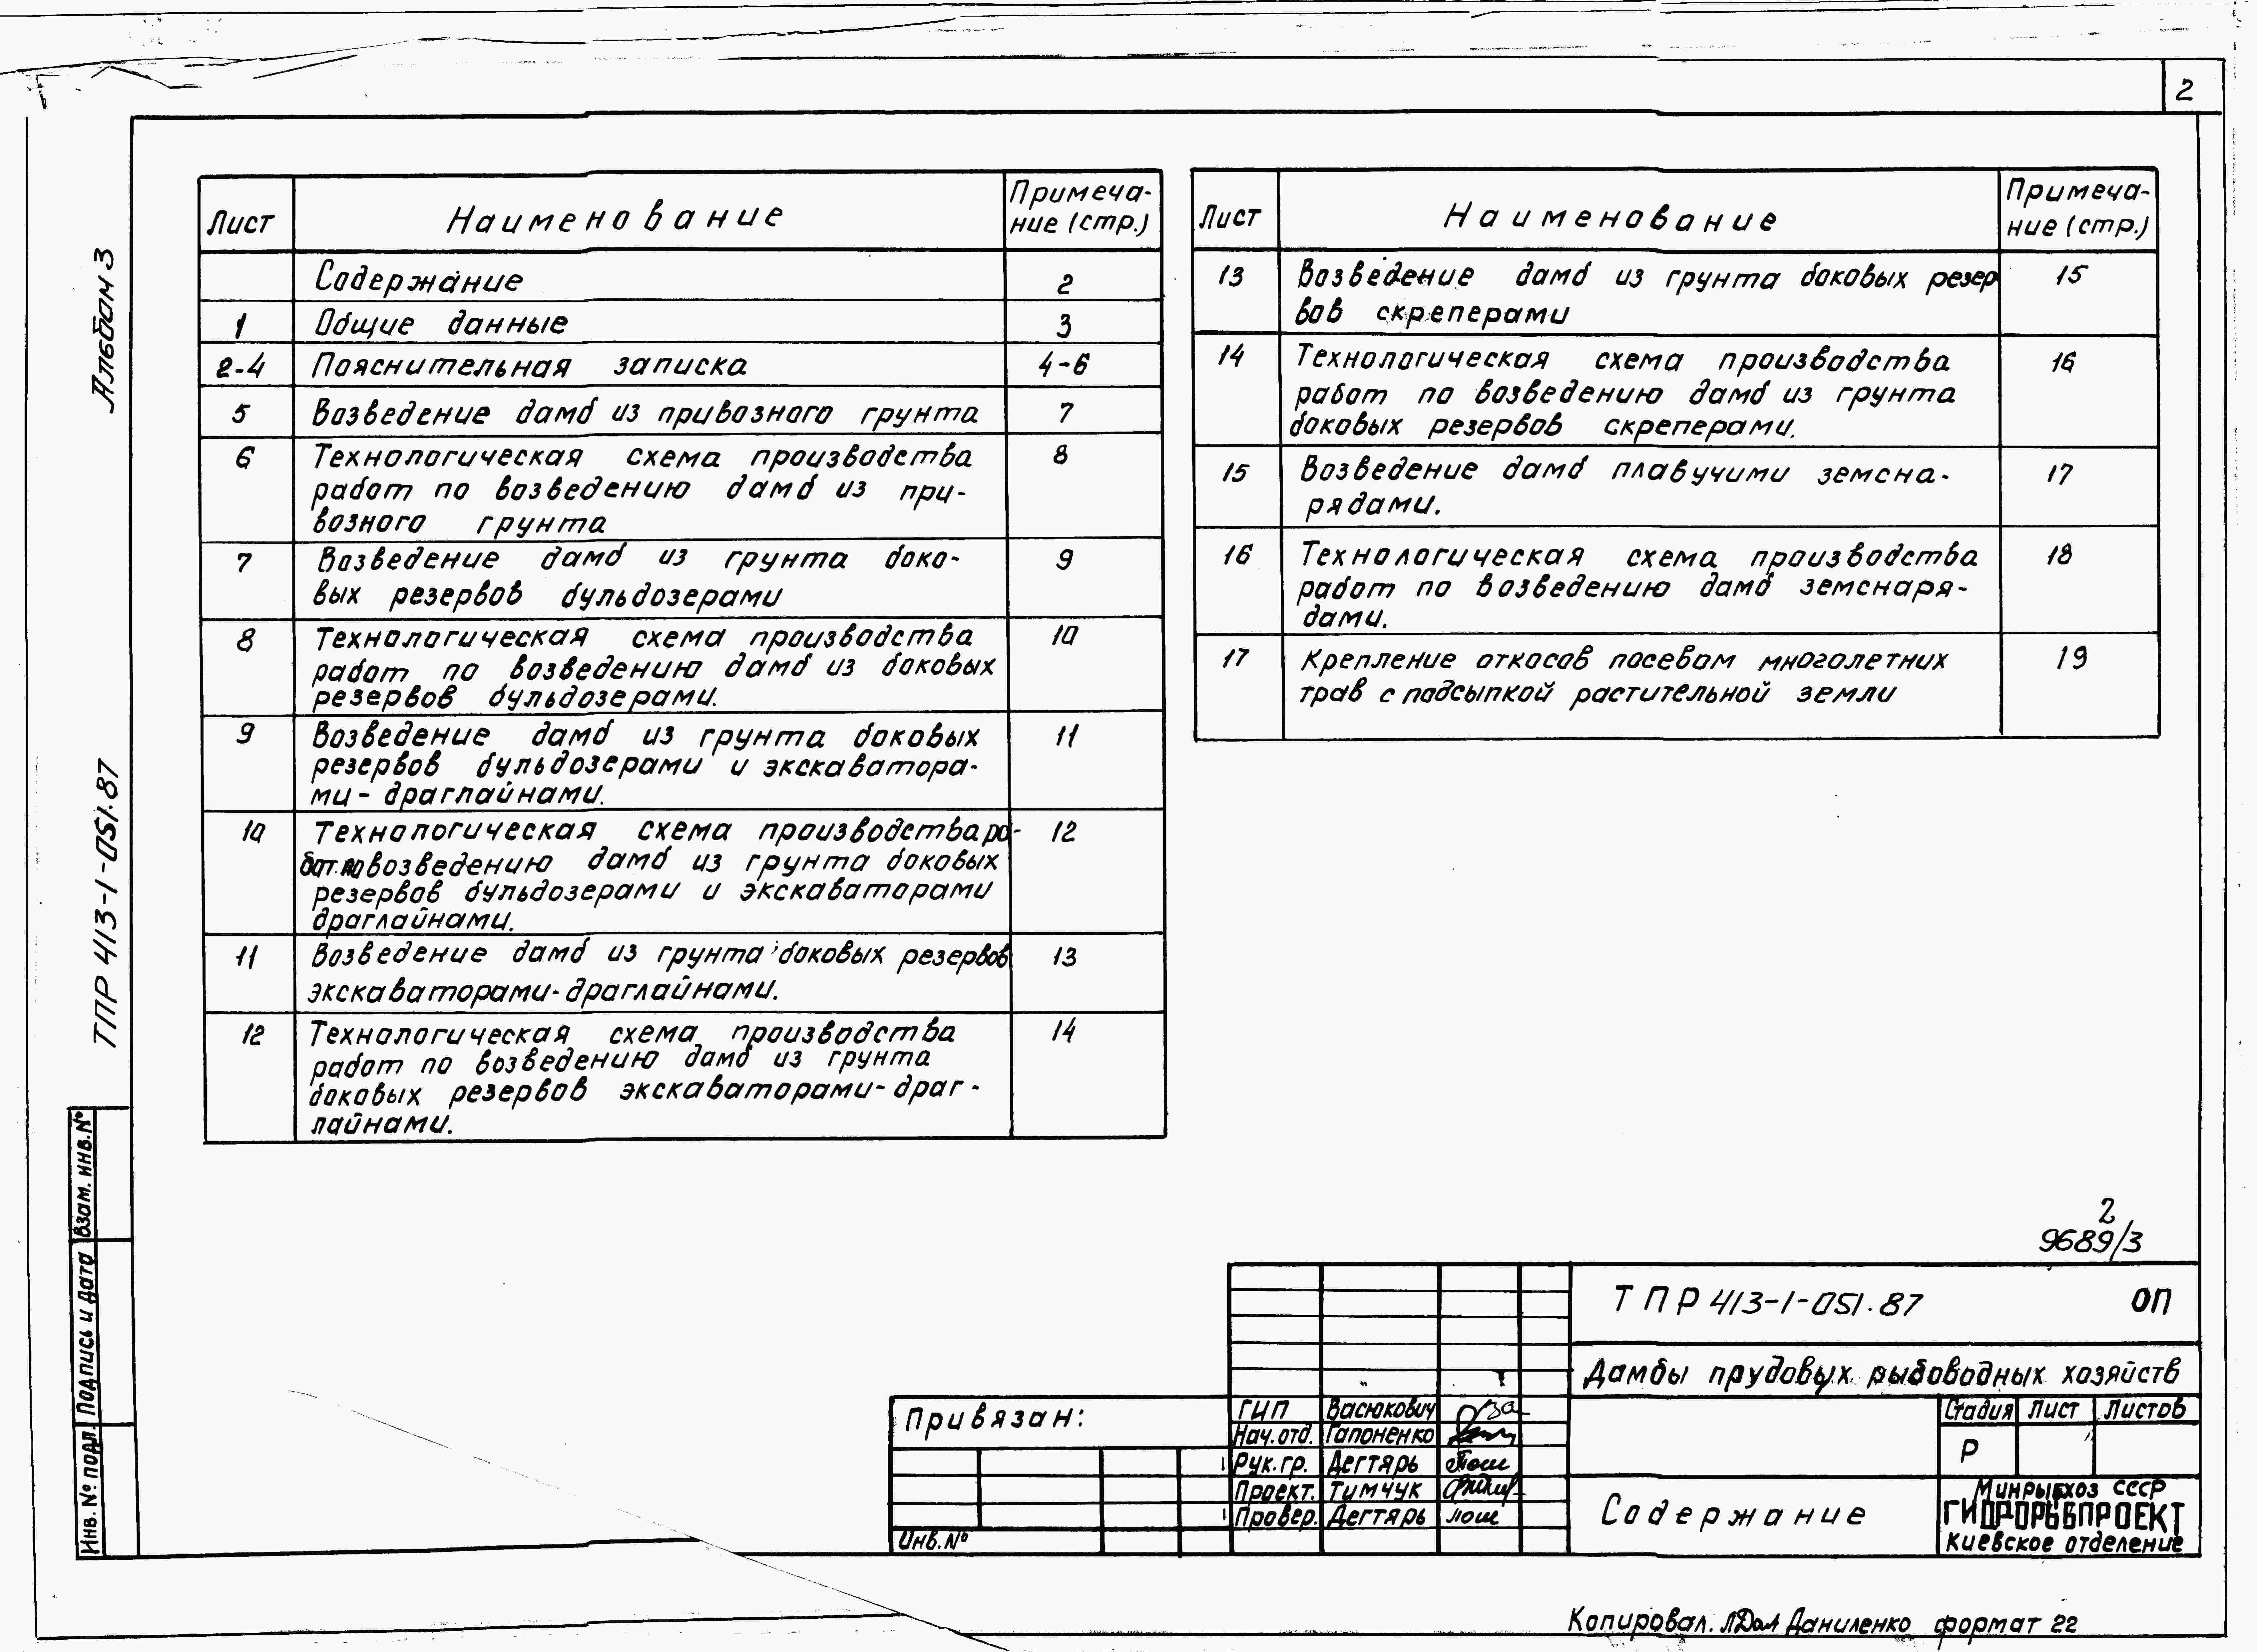 2
Альбом 3
ТПР 413-1-051.87
Взам. инв. №
Подпись и дата
Инв. № подл.
Лист
Наименование
Примеча-
ние (стр.)
Содержание
2
1
Общие данные
3
2-4
Пояснительная записка
4-6
5
Возведение дамб из привозного грунта
7
6
Технологическая схема производства
8
работ по возведению дамб из при-
возного грунта
7
Возведение дамб из грунта боко-
9
вых резервов бульдозерами
8
Технологическая схема производства
10
работ по возведению дамб из боковых
резервов бульдозерами.
9
Возведение дамб из грунта боковых
11
резервов бульдозерами и экскаватора-
ми - драглайнами.
10
Технологическая схема производства ра-
12
бот по возведению дамб из грунта боковых
резервов бульдозерами и экскаваторами
драглайнами.
11
Возведение дамб из грунта боковых резервов
13
экскаваторами-драглайнами.
12
Технологическая схема производства
14
работ по возведению дамб из грунта
боковых резервов экскаваторами-драг-
лайнами.
Лист
Наименование
Примеча-
ние (стр.)
13
Возведение дамб из грунта боковых резер
15
вов скреперами
14
Технологическая схема производства
16
работ по возведению дамб из грунта
боковых резервов скреперами.
15
Возведение дамб плавучими земсна-
17
рядами.
16
Технологическая схема производства
18
работ по возведению дамб земснаря-
дами.
17
Крепление откосов посевом многолетних
19
трав с подсыпкой растительной земли
2
9689/3
ТПР 413-1-051.87 ОП
Дамбы прудовых рыбоводных хозяйств
Привязан:
Инв. №
ГИП Васюкович
Нач. отд. Гапоненко
Рук. гр. Дегтярь
Проект. Тимчук
Провер. Дегтярь
Стадия Лист Листов
Р
Содержание
Минрыбхоз СССР
ГИДРОРЫБПРОЕКТ
Киевское отделение
Копировал. Даниленко формат 22